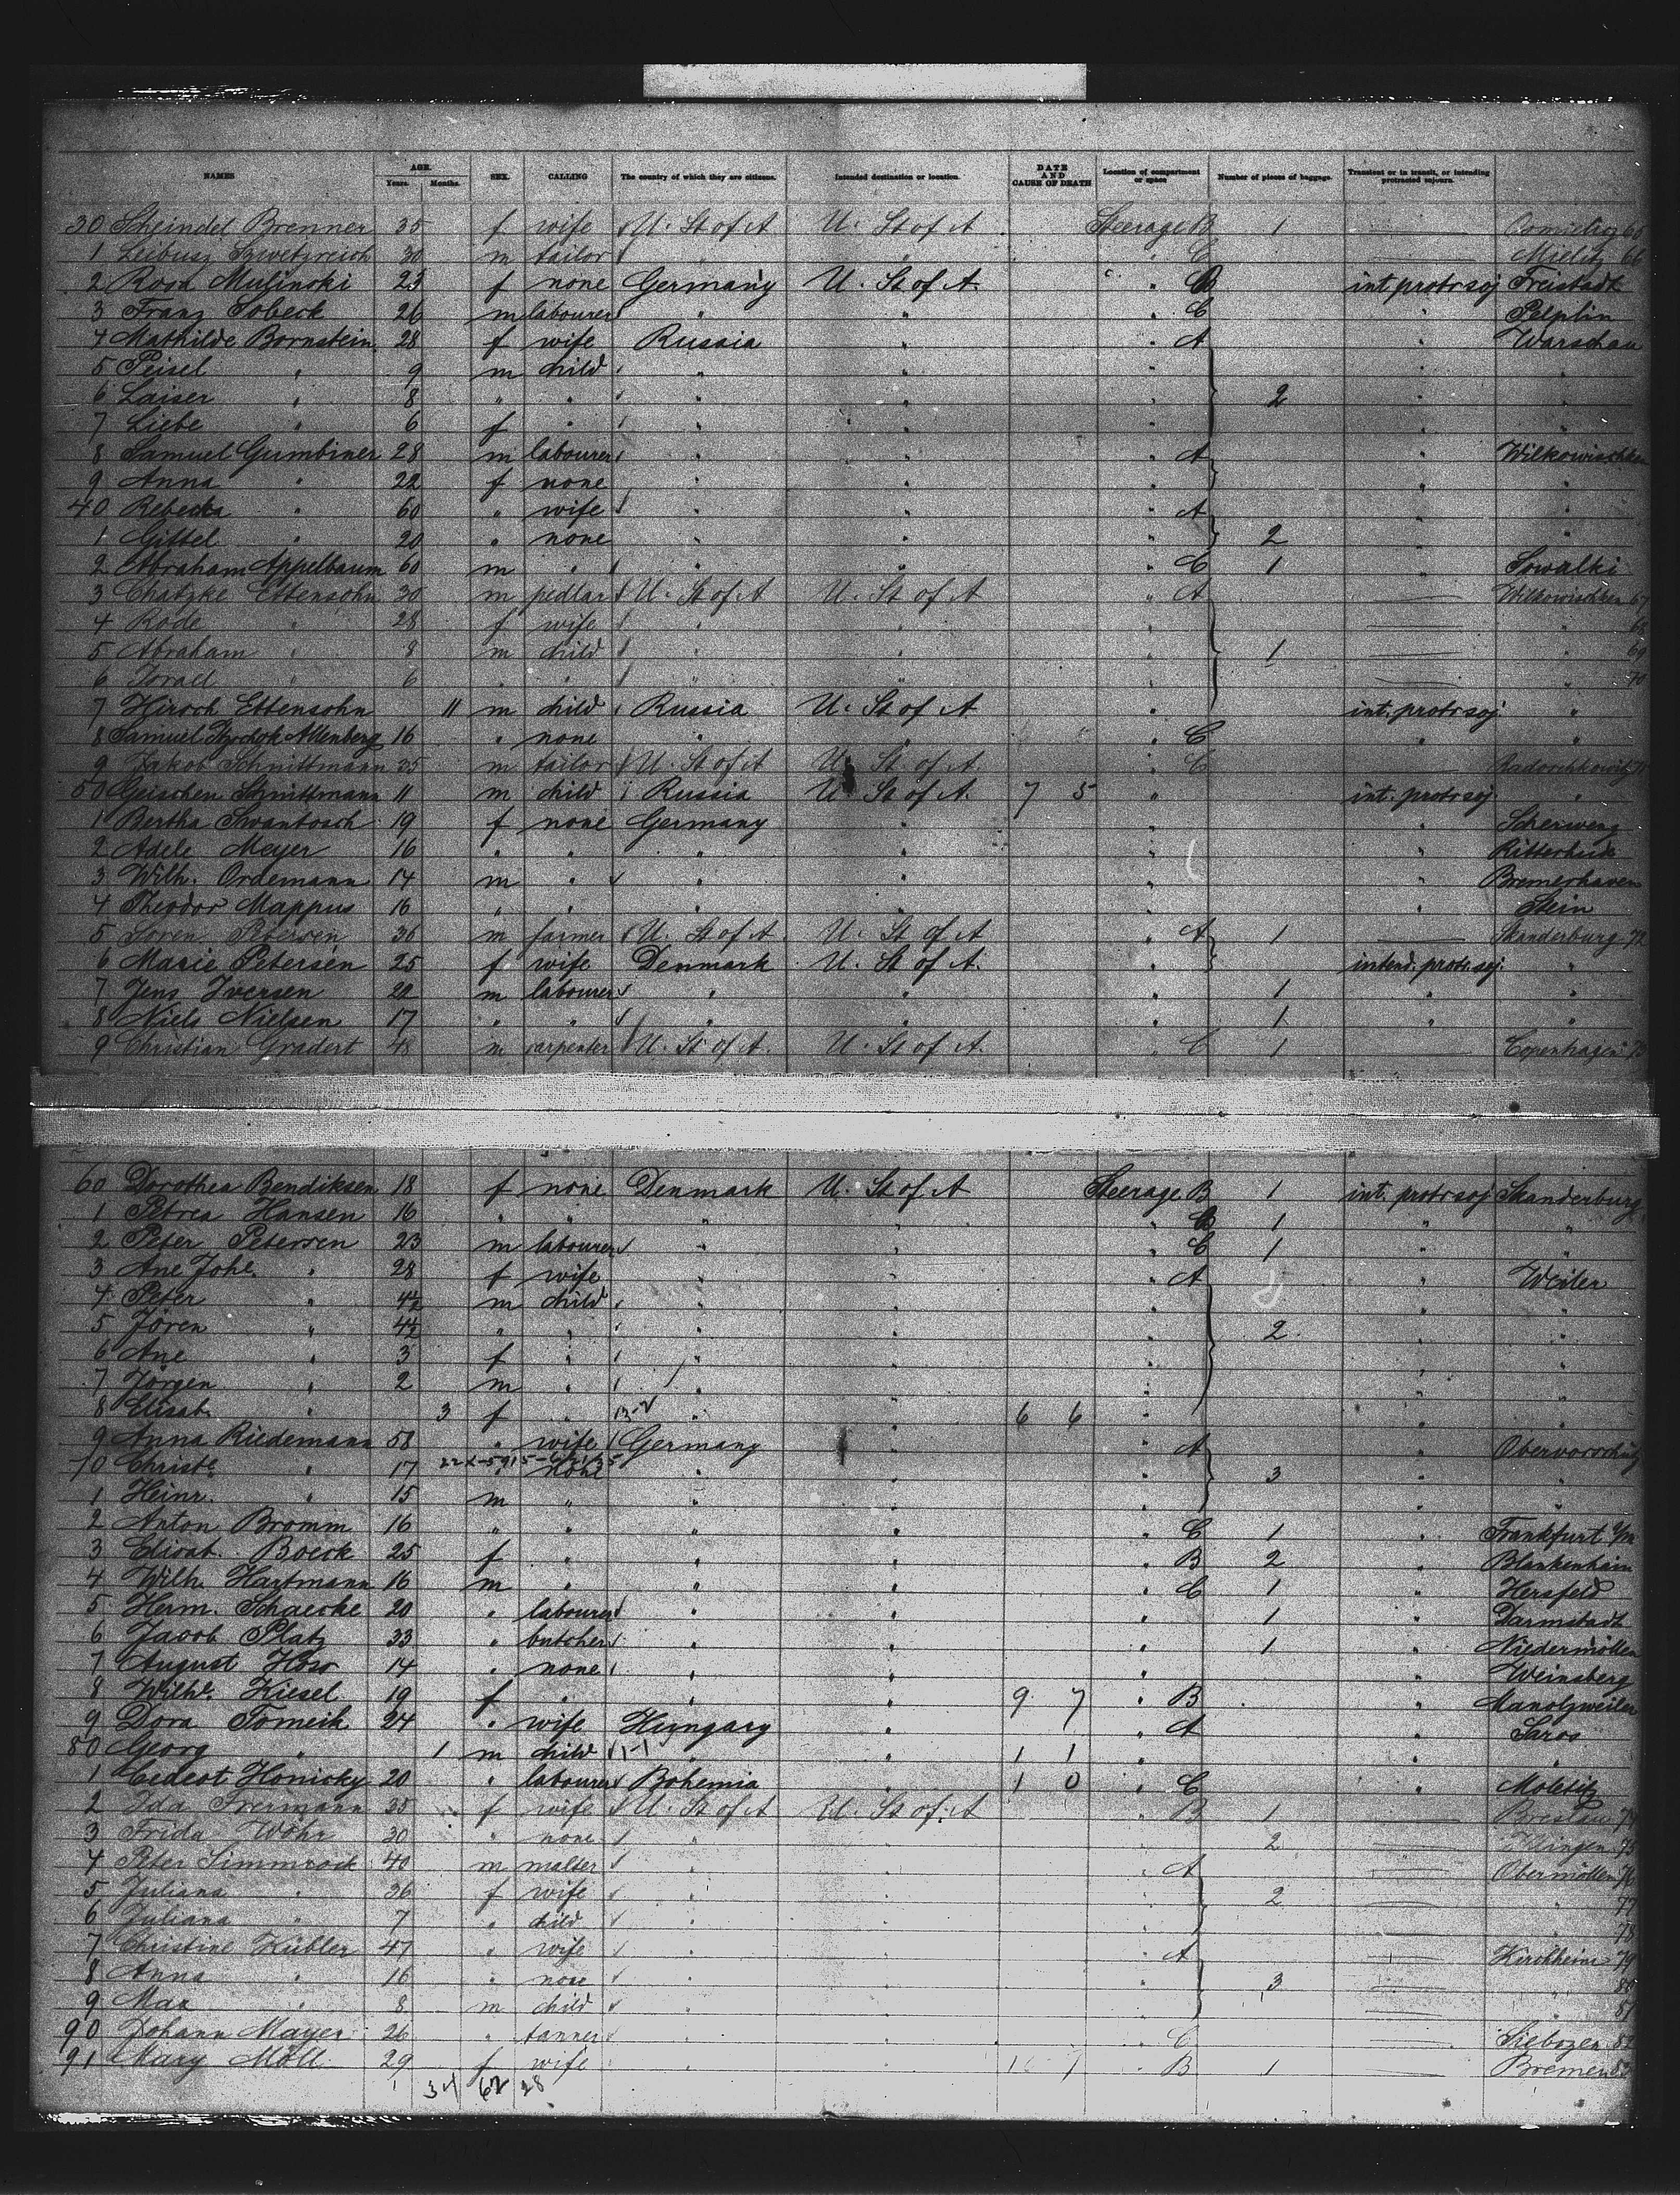 NAMES AGE. Years. Months. SEX. CALLING The country of which they are citizens. Intended destination or location. DATE AND CAUSE OF DEATH Location of compartment or space Number of pieces of baggage. Transient or in transit, or intending protracted sojourn.
30 Scheindel Brenner 35 f wife U. St of A U. St of A Steerage B 1 — 65
1 Leibusz 30 m tailor " " " C — Mielitz 66
2 Rosa Mulinski 23 f none Germany U. St of A. " B int protr soj Freistadt
3 Franz Sobeck 26 m labourer " " " C " Pelplin
4 Mathilde Bornstein 28 f wife Russia " " A " Warschau
5 Peisel " 9 m child " " " " "
6 Laiser " 8 " " " " " 2 " "
7 Liebe " 6 f " " " " " "
8 Samuel Gumbiner 28 m labourer " " " A " Wilkowischken
9 Anna " 22 f none " " " " "
40 Rebecka " 60 " wife " " " A " "
1 Gittel " 20 " none " " " 2 " "
2 Abraham Appelbaum 60 m " " " " C 1 " Sowalki
3 Chatzke Ettensohn 30 m pedlar U. St of A U. St of A " A — Wilkowischken 67
4 Rode " 28 f wife " " " — " 68
5 Abraham " 8 m child " " " 1 — " 69
6 Israel " 6 " " " " " — " 70
7 Hirsch Ettensohn 11 m child Russia U. St of A " int. protr soj "
8 Samuel Allenberg 16 " none " " " C " "
9 Jakob Schnittmann 35 m tailor U. St of A U. St of A " C — Radoschkowitz 71
50 Gerschen Schnittmann 11 m child Russia U. St of A. 7 5 " int. protr soj "
1 Bertha Swantosch 19 f none Germany " " "
2 Adele Meyer 16 " " " " " " Ritterhude
3 Wilh. Ordemann 14 m " " " " " Bremerhaven
4 Theodor Mappus 16 " " " " " " Stein
5 Soren Petersen 36 m farmer U. St of A U. St of A " A 1 — Skanderburg 72
6 Marie Petersen 25 f wife Denmark U. St of A. " intend. protr. soj. "
7 Jens Iversen 20 m labourer " " " 1 " "
8 Niels Nielsen 17 " " " " " 1 " "
9 Christian Gradert 48 m carpenter U. St of A. U. St of A. " C 1 — Copenhagen 73
60 Dorothea Bendiksen 18 f none Denmark U. St of A Steerage B 1 int. protr soj Skanderburg
1 Petrea Hansen 16 " " " " " B 1 " "
2 Peter Petersen 23 m labourer " " " C 1 " "
3 Ane Johe. " 28 f wife " " " A " Weiler
4 Peter " 4½ m child " " " " "
5 Jören " 4½ " " " " " 2 " "
6 Ane " 3 f " " " " " "
7 Jörgen " 2 m " " " " " "
8 Elisab. " 3 f " " " 6 6 " " "
9 Anna Riedemann 58 " wife Germany " " A " Obervorschütz
70 Christe. " 17 " none " " " 3 " "
1 Heinr. " 15 m " " " " " "
2 Anton Bromm 16 " " " " " C 1 " Frankfurt a/m
3 Elisab. Boeck 25 f " " " " B 2 " Blankenhain
4 Wilh. Hartmann 16 m " " " " C 1 " Hersfeld
5 Herm. Schaecke 20 " labourer " " " 1 " Darmstadt
6 Jacob Platz 33 " butcher " " " 1 " Niedermöllen
7 August Hoss 14 " none " " " " Weinsberg
8 Wilhe. Kiesel 19 f " " " 9 7 " B " Manolzweiler
9 Dora Tomeik 24 " wife Hungary " " A " Saros
80 Georg " 1 m child 1-1 " 1 1 " " "
1 Honicky 20 " labourer Bohemia " 1 0 " C " Moletitz
2 Ida Frermann 35 f wife U. St of A U. St of A " B 1 — Breslau 74
3 Frida Wöhr 30 " none " " " 2 — Illingen 75
4 Peter Simmrock 40 m malter " " " A — Obermöllen 76
5 Juliana " 36 f wife " " " 2 — " 77
6 Juliana " 7 " child " " " — " 78
7 Christine Kübler 47 " wife " " " A — Kirchheim 79
8 Anna " 16 " none " " " 3 — " 80
9 Max " 8 m child " " " — " 81
90 Johann Mayer 26 " tanner " " " C — 82
91 Mary Moll 29 f wife " " " B 1 — Bremen 83
34 62 28